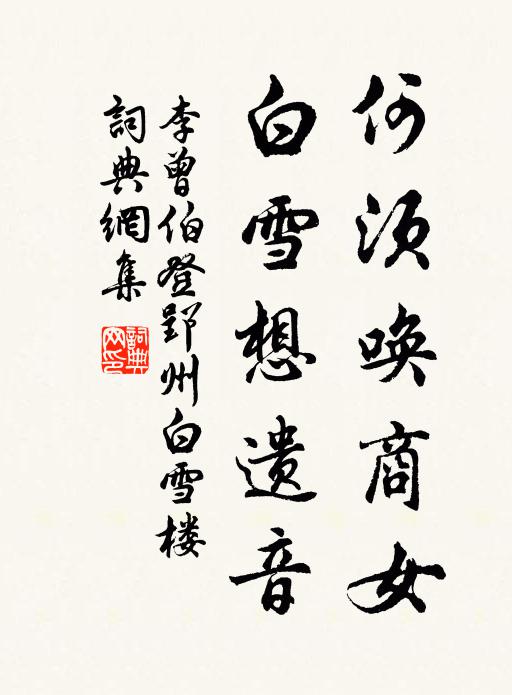 何须唤商女
白雪想遗音
李曾伯登郢州白雪楼
詞典網集
詞典網印